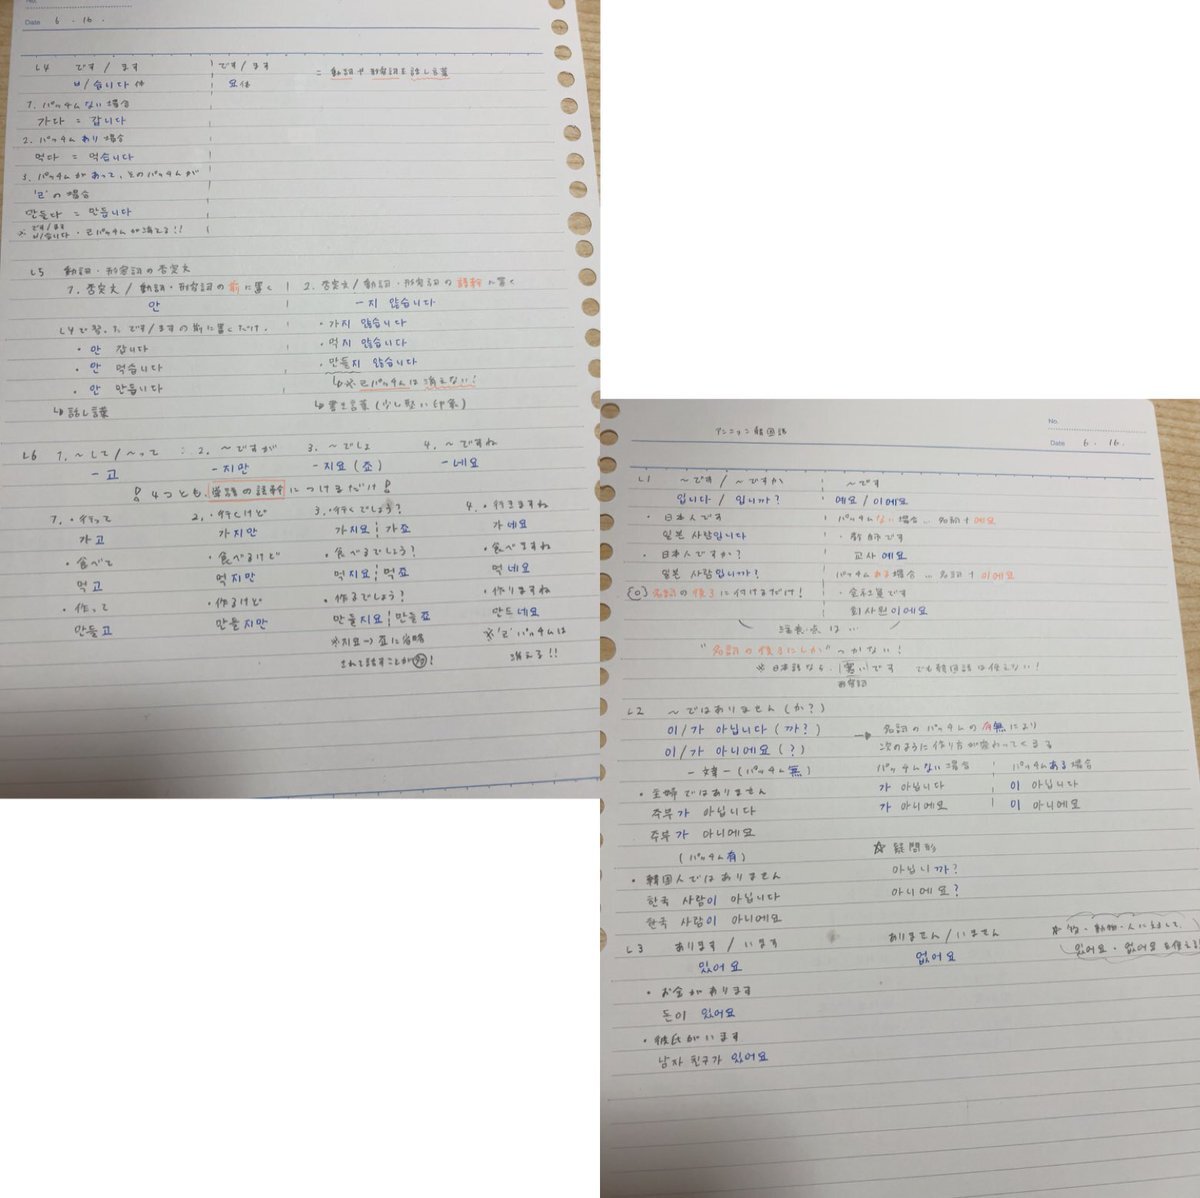 No.
Date 6 . 16 .
L4 です / ます ですノます = 動詞や形容詞を話し言葉
ㅂ/습니다 体 요体
1. パッチムない場合
가다 = 갑니다
2. パッチムあり場合
먹다 = 먹습니다
3. パッチムがあって、そのパッチムが
'ㄹ'の場合
만들다 = 만듭니다
※ です/ます ㅂ/습니다 ・ ㄹパッチムが消える!!
L5 動詞・形容詞の否定文
1. 否定文 / 動詞・形容詞の前に置く 2. 否定文/動詞・形容詞の語幹に置く
안 -지 않습니다
L4で習った です/ますの前に置くだけ。 ・가지 않습니다
・안 갑니다 ・먹지 않습니다
・안 먹습니다 ・만들지 않습니다
・안 만듭니다 ↳※ㄹパッチムは消えない!
↳話し言葉 ↳書き言葉(少し堅い印象)
L6 1. ~して/~って 2. ~ですが 3. ~でしょ 4. ~ですね
-고 -지만 -지요(죠) -네요
4つとも、単語の語幹につけるだけ!
1. ・行って 2. ・行くけど 3. ・行くでしょう? 4. ・行きますね
가고 가지만 가지요 ¦ 가죠 가네요
・食べて ・食べるけど ・食べるでしょう? ・食べますね
먹고 먹지만 먹지요 ¦ 먹죠 먹네요
・作って ・作るけど ・作るでしょう? ・作りますね
만들고 만들지만 만들지요 ¦ 만들죠 만드네요
※지요→죠に省略 ※'ㄹ'パッチムは
されて話すことが多! 消える!!
アンニョン韓国語
No.
Date 6 . 16 .
L1 ~です / ~ですか ~です
입니다 / 입니까? 예요 / 이에요
・日本人です パッチムない場合 … 名詞+예요
일본 사람입니다 ・教師です
・日本人ですか? 교사 예요
일본 사람입니까? パッチムある場合 … 名詞+이에요
名詞の後ろに付けるだけ! ・会社員です
회사원이에요
注意点は …
"名詞の後ろにしか"つかない!
※日本語なら、寒いです でも韓国語は使えない!
形容詞
L2 ~ではありません(か?)
이/가 아닙니다(까?) → 名詞のパッチムの有無により
이/가 아니에요(?) 次のように作り方が変わってくる
-文章-(パッチム無) パッチムない場合 パッチムある場合
・主婦ではありません 가 아닙니다 이 아닙니다
주부가 아닙니다 가 아니에요 이 아니에요
주부가 아니에요
(パッチム有) ☆ 疑問形
・韓国人ではありません 아닙니까?
한국 사람이 아닙니다 아니에요?
한국 사람이 아니에요
L3 あります / います ありません / いません ☆物・動物・人に対して、
있어요 없어요 있어요・없어요を使える!
・お金があります
돈이 있어요
・彼氏がいます
남자 친구가 있어요